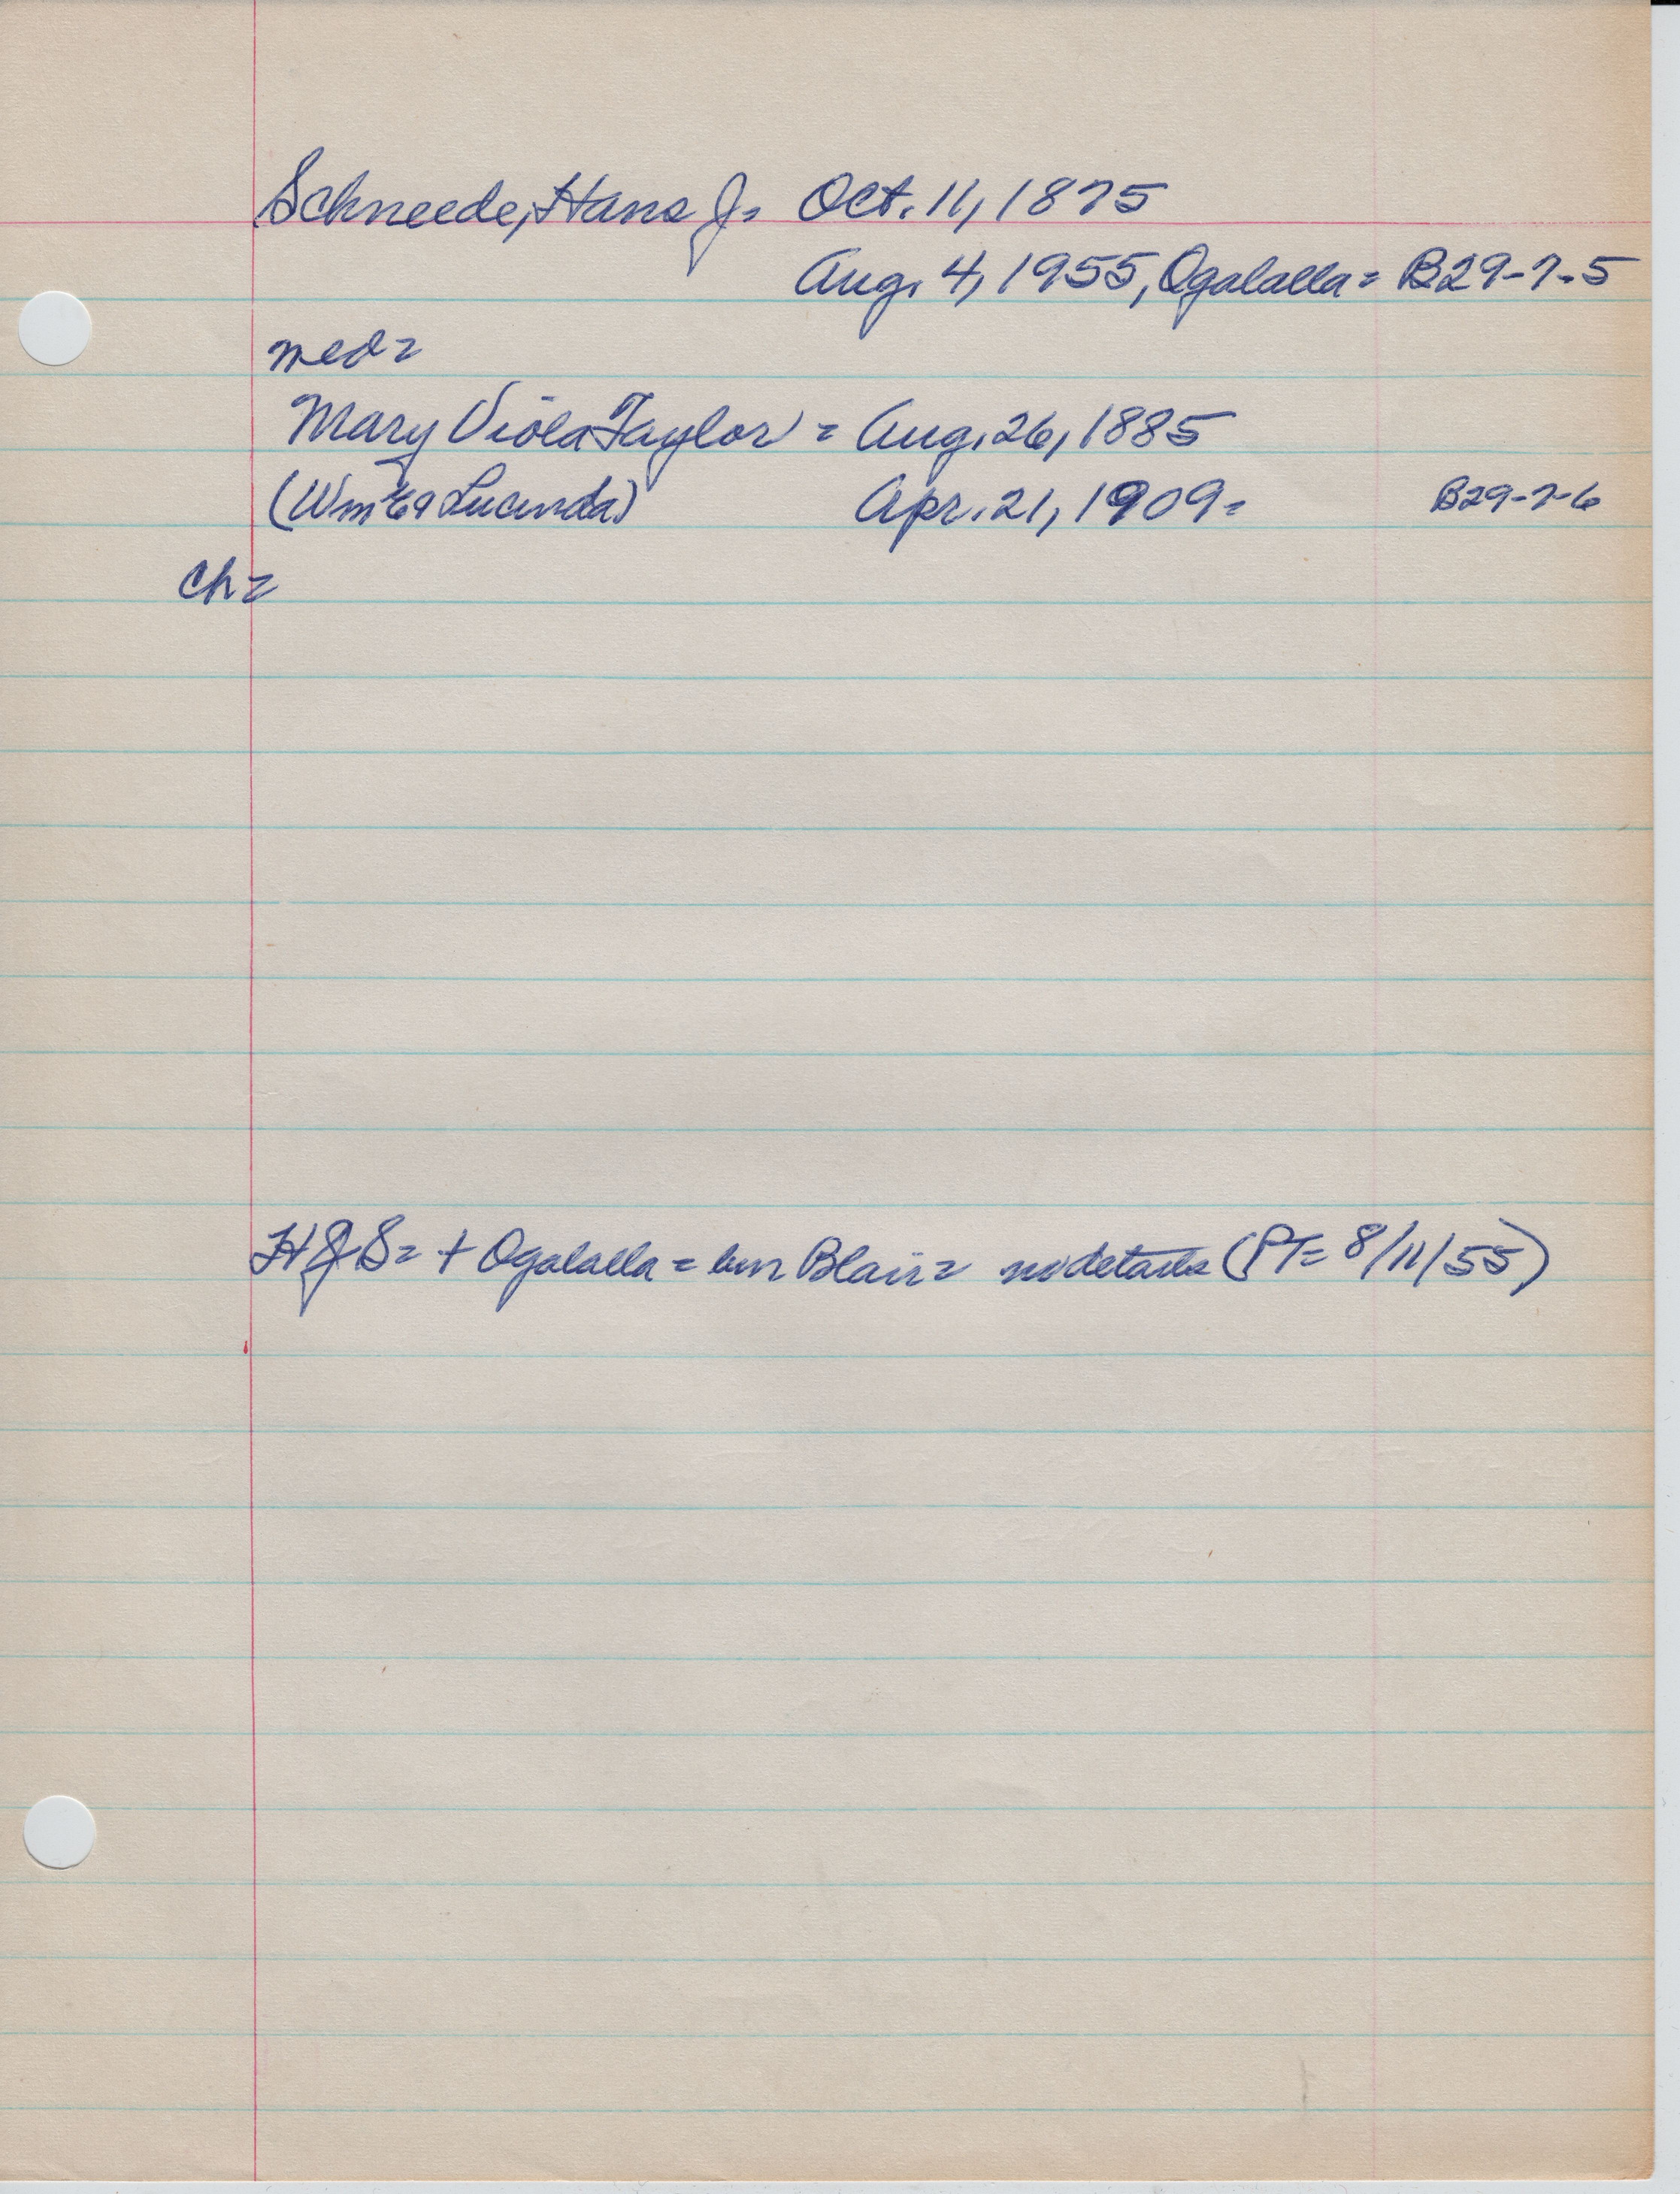 Schneede, Hans J. Oct. 11, 1875
Aug. 4, 1955, Ogalalla = B29-7-5
med =
Mary Viola Taylor = Aug. 26, 1885
(Wm & Lucinda) Apr. 21, 1909 = B29-7-6
Ch =
HJS = + Ogalalla = bur Blair = no details (PT = 8/11/55)